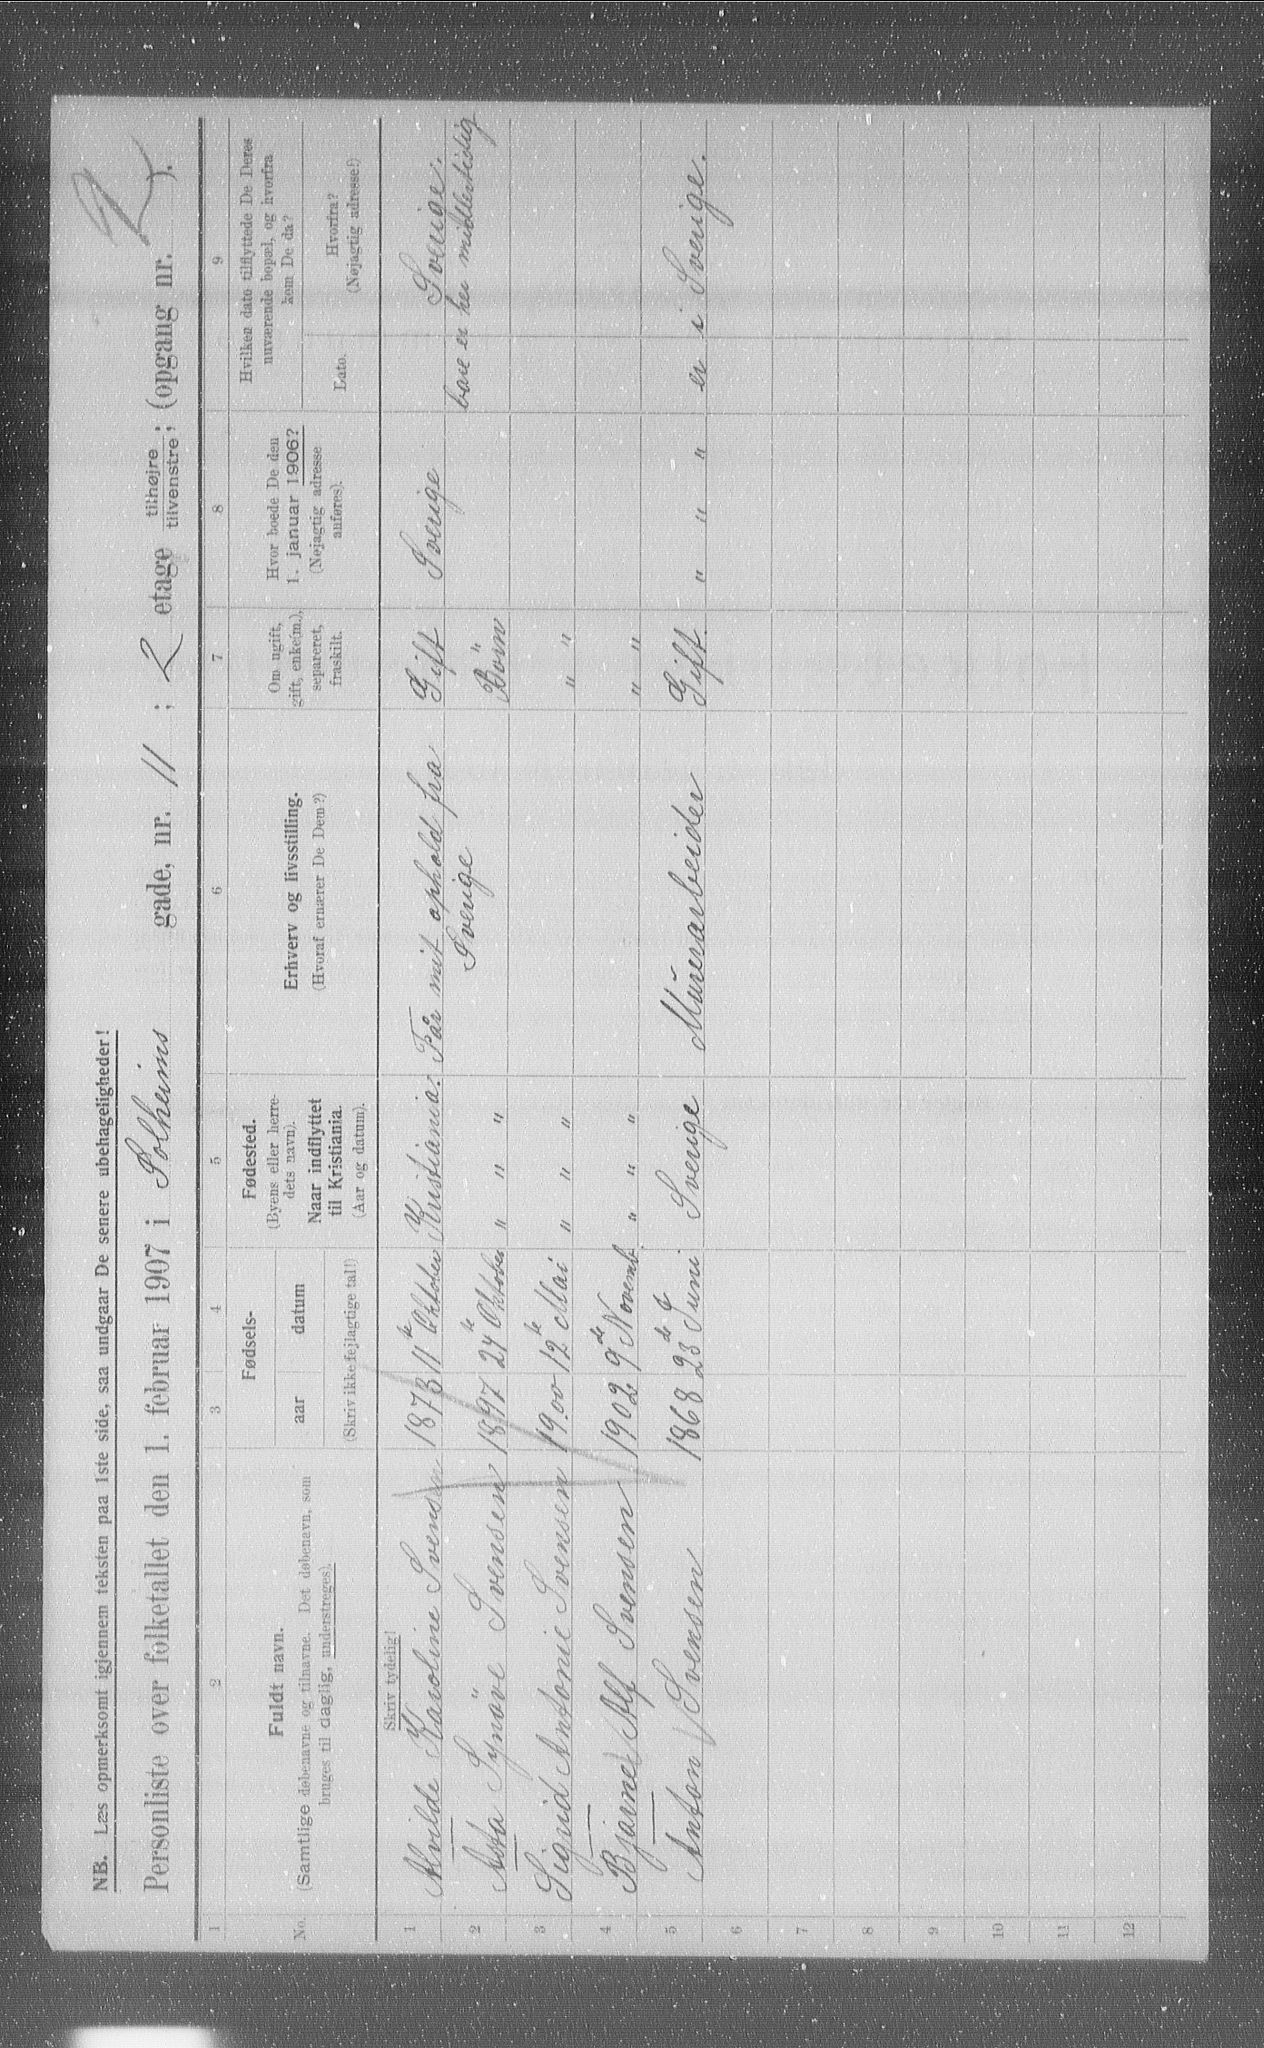 NB. Læs opmerksomt igjennem teksten paa 1ste side, saa undgaar De senere ubehageligheder!
Personliste over folketallet den 1. februar 1907 i Solheims gade, nr. 11 ; 2 etage tilhøjre tilvenstre ; (opgang nr. 2 ).
1 2 3 4 5 6 7 8 9
No.
Fuldt navn.
(Samtlige døbenavne og tilnavne. Det døbenavn, som
bruges til daglig, understreges).
Fødsels-
aar datum
(Skriv ikke fejlagtige tal!)
Fødested.
(Byens eller herre-
dets navn).
Naar indflyttet
til Kristiania.
(Aar og datum).
Erhverv og livsstilling.
(Hvoraf ernærer De Dem?)
Om ugift,
gift, enke(m.),
separeret,
fraskilt.
Hvor boede De den
1. januar 1906?
(Nøjagtig adresse
anføres).
Hvilken dato tilflyttede De Deres
nuværende bopæl, og hvorfra
kom De da?
Dato.
Hvorfra?
(Nøjagtig adresse!)
Skriv tydelig!
1 Alvilde Karoline Svensen 1873 11te Oktober Kristiania. Får mit ophold fra Gift Sverige Sverige.
2 Asta Synöve Svensen 1897 24te Oktober " " " Sverige Born " bare er her midlertidig
3 Sigrid Antonie Svensen 19.00 12te Mai " " " " "
4 Bjarne Alf Svensen 1902 9de Novemb. " " " " "
5 Anton Svensen 1868 23de Juni Sverige Mŭrerarbeider Gift. " " " er i Sverige.
6
7
8
9
10
11
12